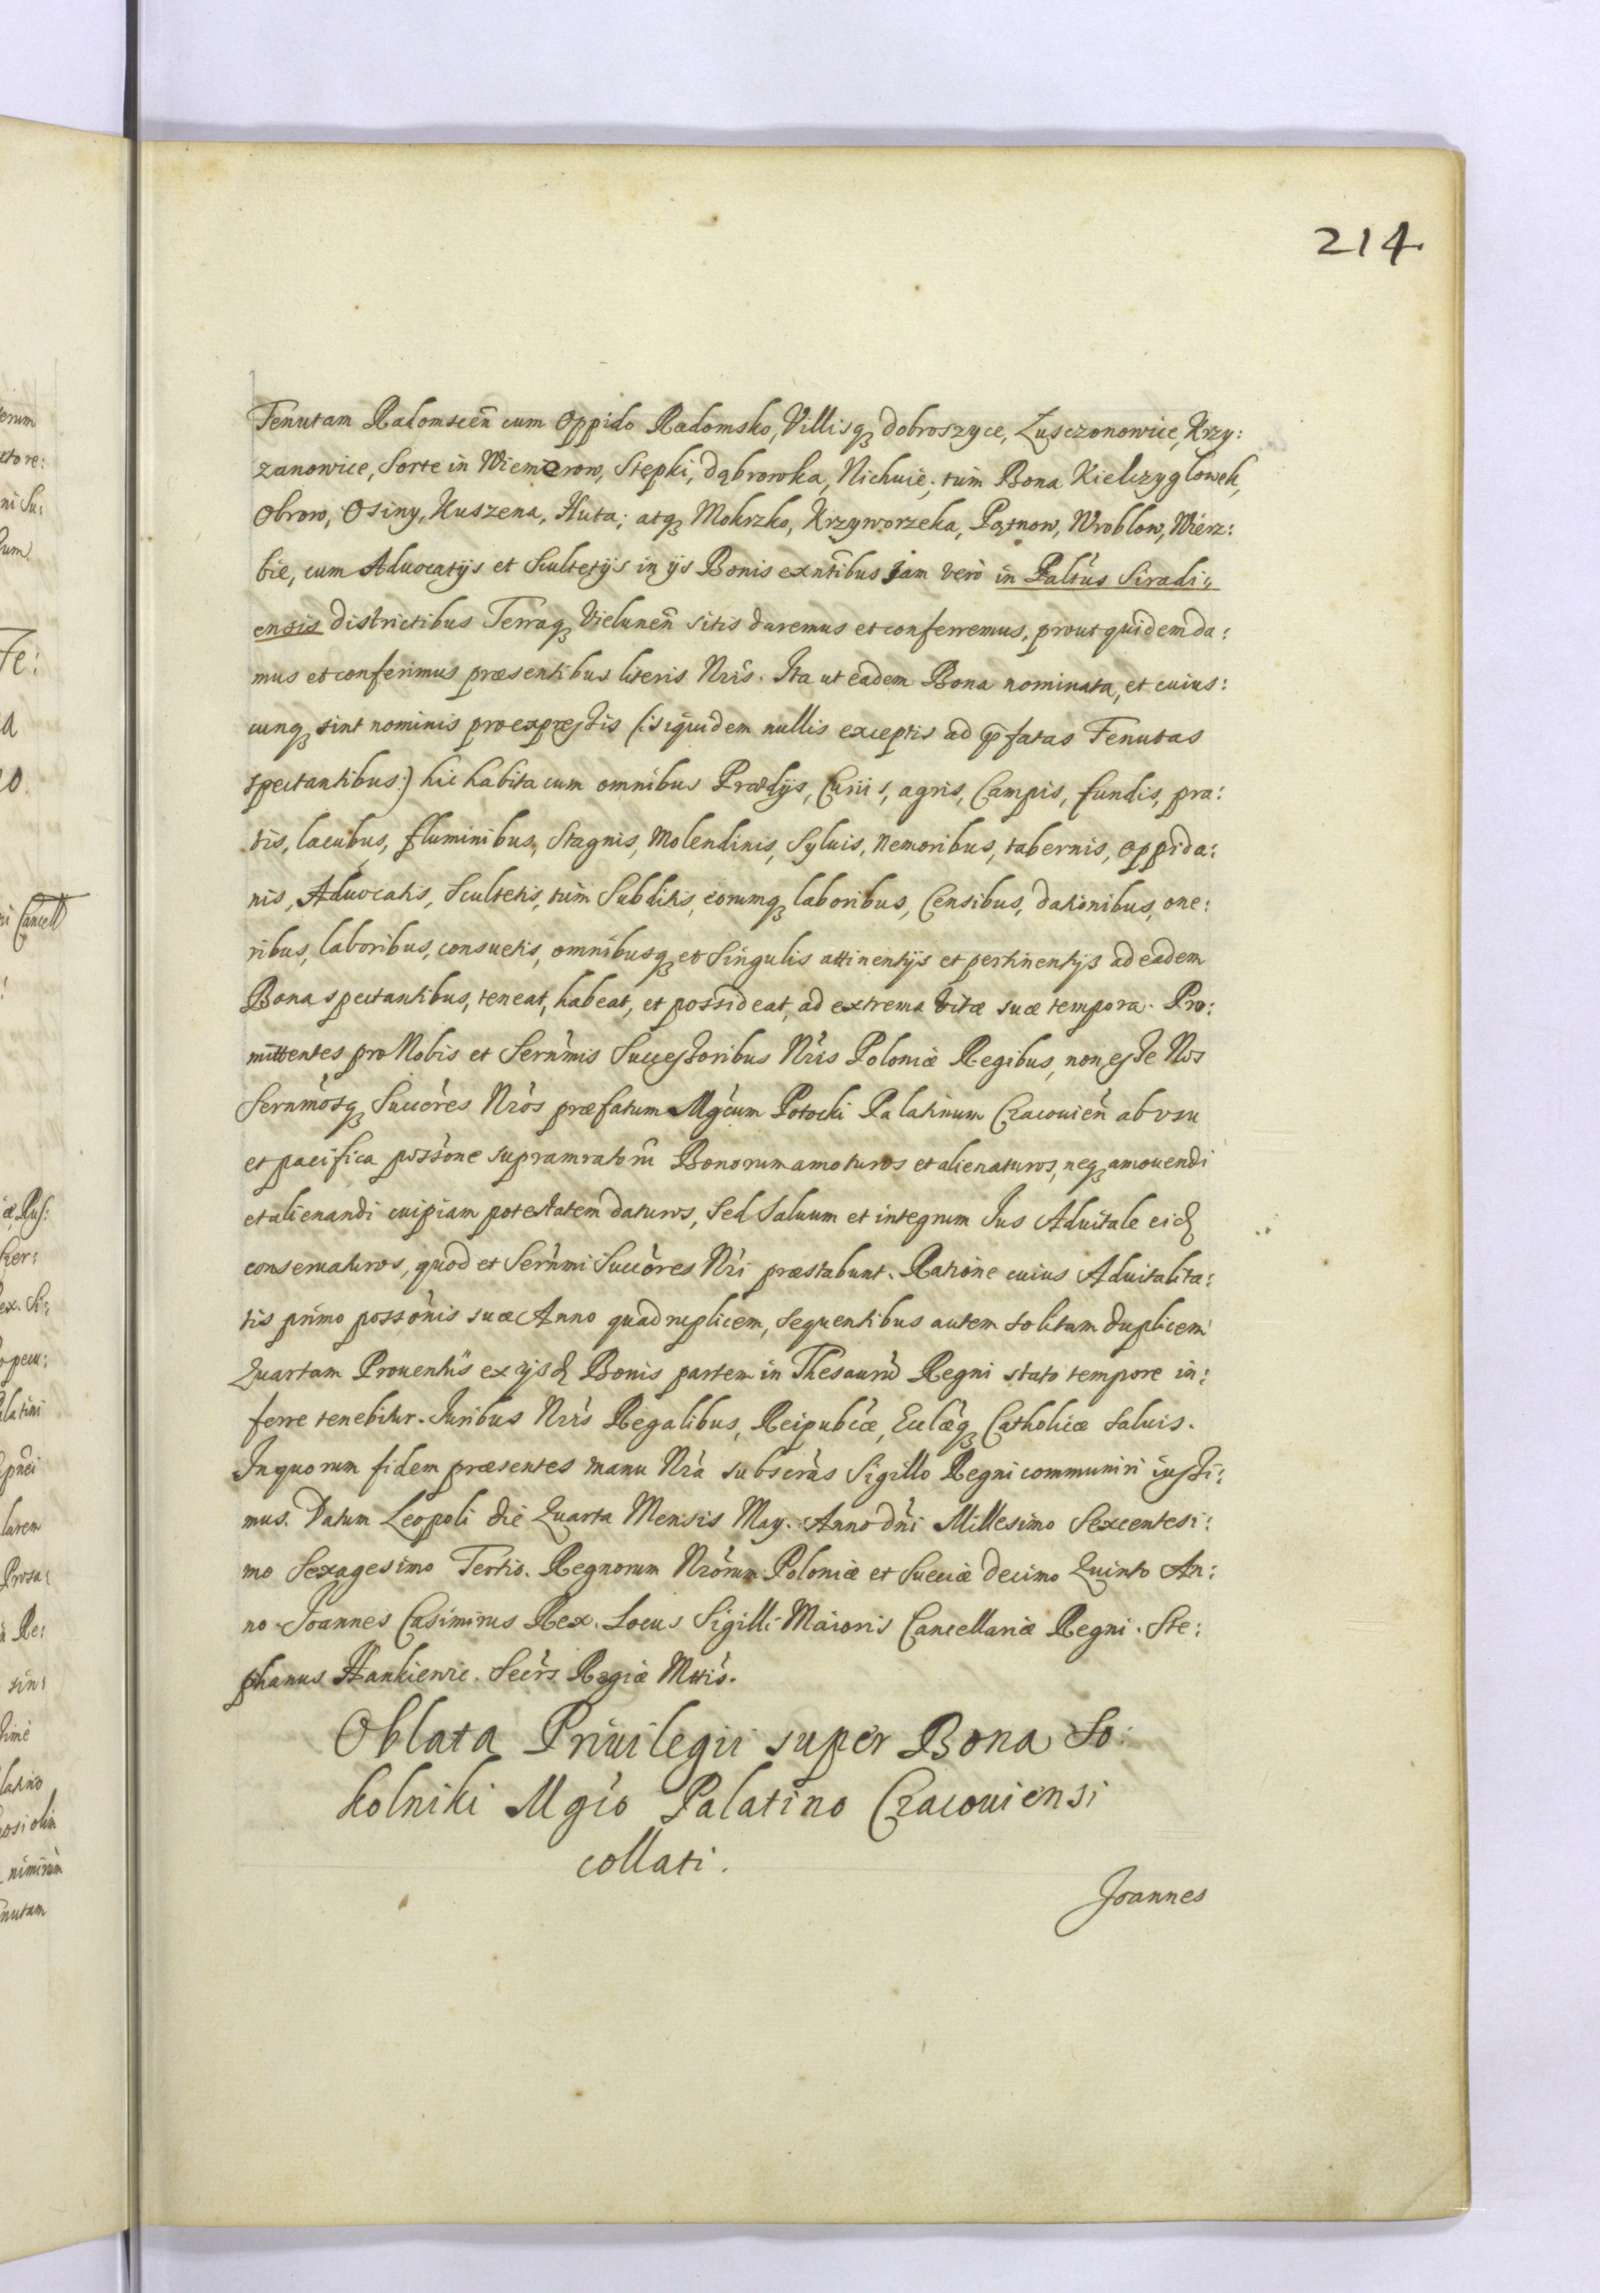 214
Tenutam Radomscēn cum Oppido Radomsko, Villisq₃ dobroszyce, Lusczonowice, Krzy:
zanowice, Sorte in Niemierow, Stępki, dąbrowka, Nichuie; tum Bona Kielczyglowek,
Obrow, Osiny, Huszena, Huta; atq₃ Mokrzko, Krzyworzeka, Pątnow, Wroblow, Wierz:
bie, cum Aduocatÿs et Scultetÿs in ÿs Bonis exn̄tibus jam vero in Paltu̇s Siradi:
ensis districtibus Terraq₃ Vielunen̄ sitis daremus et conferremus, prout quidem da:
mus et conferimus præsentibus literis Nrīs. Ita ut eadem Bona nominata, et cuius:
cunq₃ sint nominis pro expressis (siquidem nullis exceptis ad p̄fatas Tenutas
spectantibus:) hic habita cum omnibus Prædÿs, Curiis, agris, Campis, fundis, pra:
tis, lacubus, fluminibus, Stagnis, Molendinis, Syluis, Nemoribus, tabernis, oppida:
nis, Aduocatis, Scultetis, tum Subditis, eorumq₃ laboribus, Censibus, dationibus, one:
ribus, laboribus, consuetis, omnibusq₃ et Singulis attinentÿs et pertinentÿs ad eadem
Bona spectantibus, teneat, habeat, et possideat, ad extrema vitæ suæ tempora. Pro:
mittentes pro Nobis et Sern̄mis Successoribus Nrīs Poloniæ Regibus, non esse Nos
Sern̄mosq₃ Succōres Nrōs præfatum Mgċum Potocki Palatinum Cracouien̄ ab vsu
et pacifica possōne supramratorū Bonorum amoturos et alienaturos, neq₃ amouendi
et alienandi cuipiam potestatem daturos, Sed Saluum et integrum Jus Aduitale eid
conseruaturos, quod et Sern̄mi Succōres Nrī præstabunt. Ratione cuius Aduitalita:
tis primo possōnis suæ Anno quadruplicem, sequentibus autem solitam duplicem
Quartam Prouentūs ex ÿsd Bonis partem in Thesaurū Regni stato tempore in:
ferre tenebitur. Juribus Nrīs Regalibus, Reipubċæ, Ecclæq₃ Catholicæ saluis.
In quorum fidem præsentes manu Nrā subscrās Sigillo Regni communiri iussi:
mus. Datum Leopoli die Quarta Mensis May. Anno dn̄i Millesimo Sexcentesi:
mo Sexagesimo Tertio. Regnorum Nrōrum Poloniæ et Sueciæ decimo Quinto An:
no. Joannes Casimirus Rex. Locus Sigilli Maioris Cancellariæ Regni. Ste:
phanus Hankiewic. Secrs̄ Regiæ Mttis̄.
Oblata Priuilegii super Bona So:
kolniki Mgċo Palatino Cracouiensi
collati.
Joannes